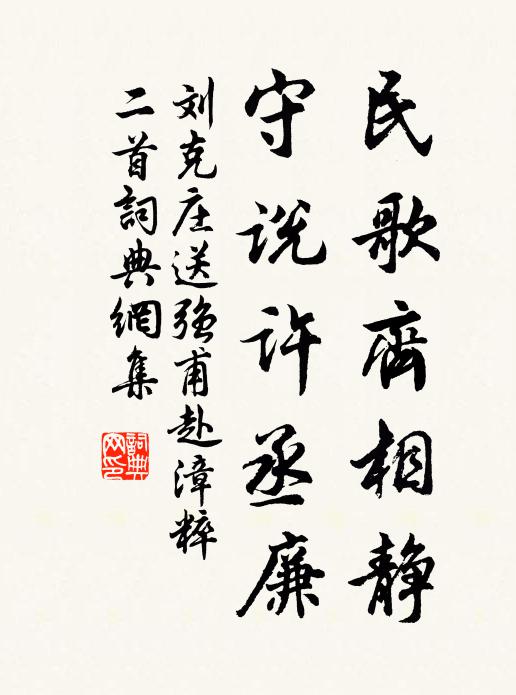 民歌齊相静
守说许丞廉
刘克庄送强甫赴漳粹
二首詞典網集
詞典网印